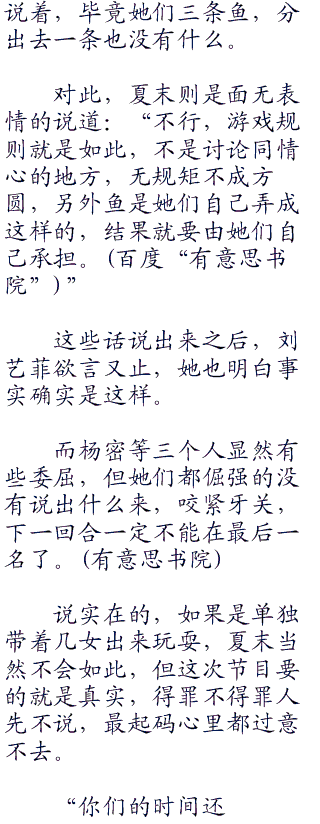 说着，毕竟她们三条鱼，分
出去一条也没有什么。
对此，夏末则是面无表
情的说道：“不行，游戏规
则就是如此，不是讨论同情
心的地方，无规矩不成方
圆，另外鱼是她们自己弄成
这样的，结果就要由她们自
己承担。(百度“有意思书
院”)”
这些话说出来之后，刘
艺菲欲言又止，她也明白事
实确实是这样。
而杨密等三个人显然有
些委屈，但她们都倔强的没
有说出什么来，咬紧牙关，
下一回合一定不能在最后一
名了。(有意思书院)
说实在的，如果是单独
带着几女出来玩耍，夏末当
然不会如此，但这次节目要
的就是真实，得罪不得罪人
先不说，最起码心里都过意
不去。
“你们的时间还